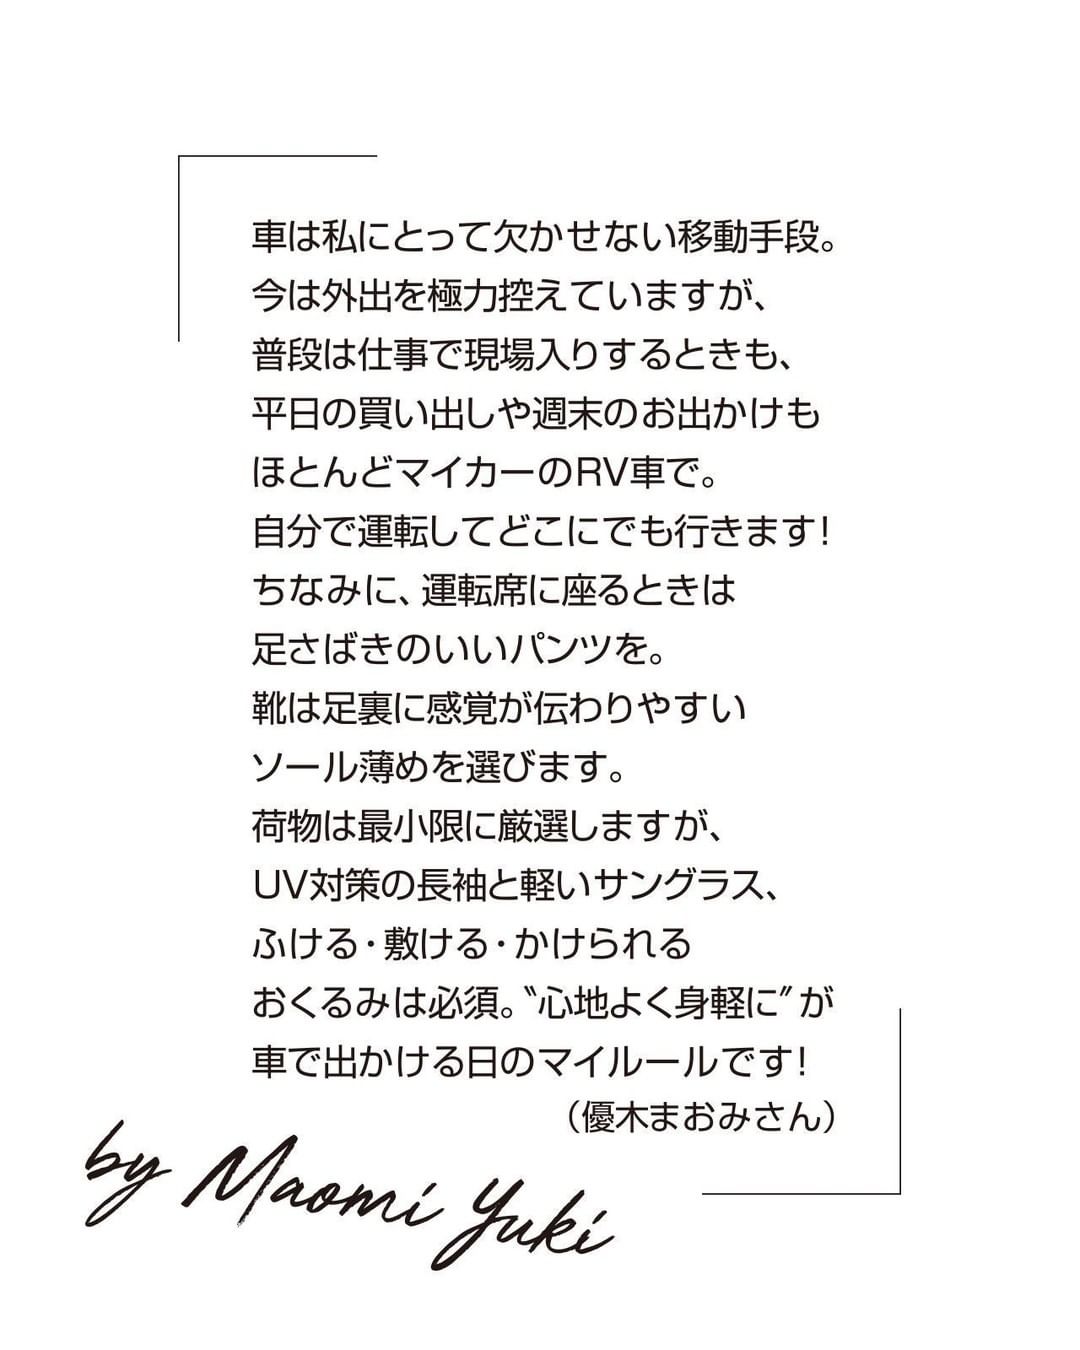 車は私にとって欠かせない移動手段。
今は外出を極力控えていますが、
普段は仕事で現場入りするときも、
平日の買い出しや週末のお出かけも
ほとんどマイカーのRV車で。
自分で運転してどこにでも行きます!
ちなみに、運転席に座るときは
足さばきのいいパンツを。
靴は足裏に感覚が伝わりやすい
ソール薄めを選びます。
荷物は最小限に厳選しますが、
UV対策の長袖と軽いサングラス、
ふける・敷ける・かけられる
おくるみは必須。〝心地よく身軽に〟が
車で出かける日のマイルールです!
（優木まおみさん）
by Maomi Yuki